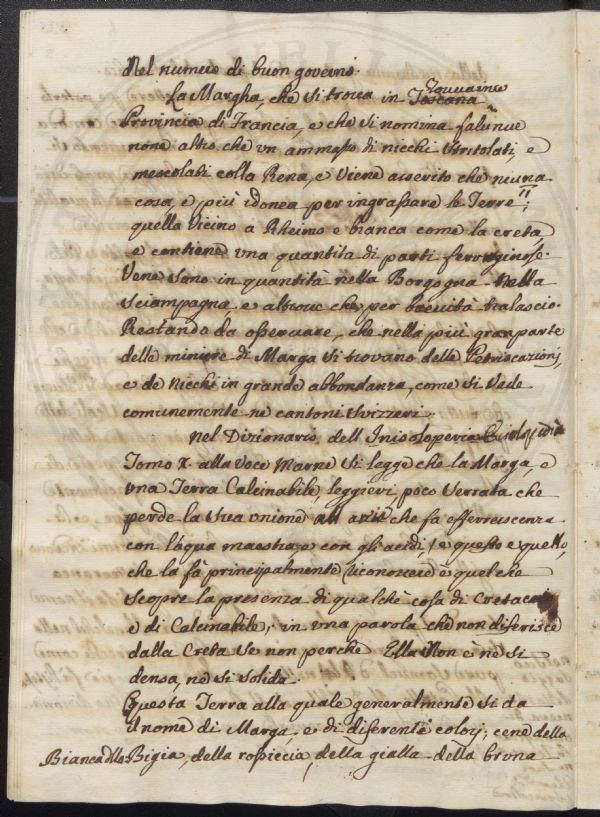 Nel numero di buon governo.
La Margha, che si trova in Toscana Touuaine
Provincia di Francia, e che si nomina falunue
none altro che vn ammasso di nicchi stritolati, e
mescolati colla Rena, e viene asserito che niuna
cosa, e più idonea per ingrassare le Terre;
quella vicino a Rheims e bianca come la creta,
e contiene vna quantita di parti ferruginose.
Vene sono in quantità nella Borgogna Nella
Sciampagna, e altroue che per breuità tralascio.
Restando da osseruare, che nella più gran parte
delle miniere di Marga si trovano delle Petrificazionj,
e de Nicchi in grande abbondanza, come si Vede
comunemente ne cantoni svizzeri.
Nel Dizionario, dell
Tomo X. alla Voce Marne si legge che la Marga, e
vna Terra Calcinabile, leggieri poco serrata che
perde la sua vnione all aria che fa efferuescenza
con l'aqua maestra, e con gli acidi, e questo e quello,
che la fà principalmente riconoscere e quel che
scopre la presenza di qualche cosa di Cretaceo
e di Calcinabile; in vna parola che non diferisce
dalla Creta se non perche Ella Non è ne si
densa, ne si solida.
Questa Terra alla quale generalmente si da
il nome di Marga, e di diferenti colorj; cene della
Bianca della Bigia, della rossiccia, della gialla della bruna